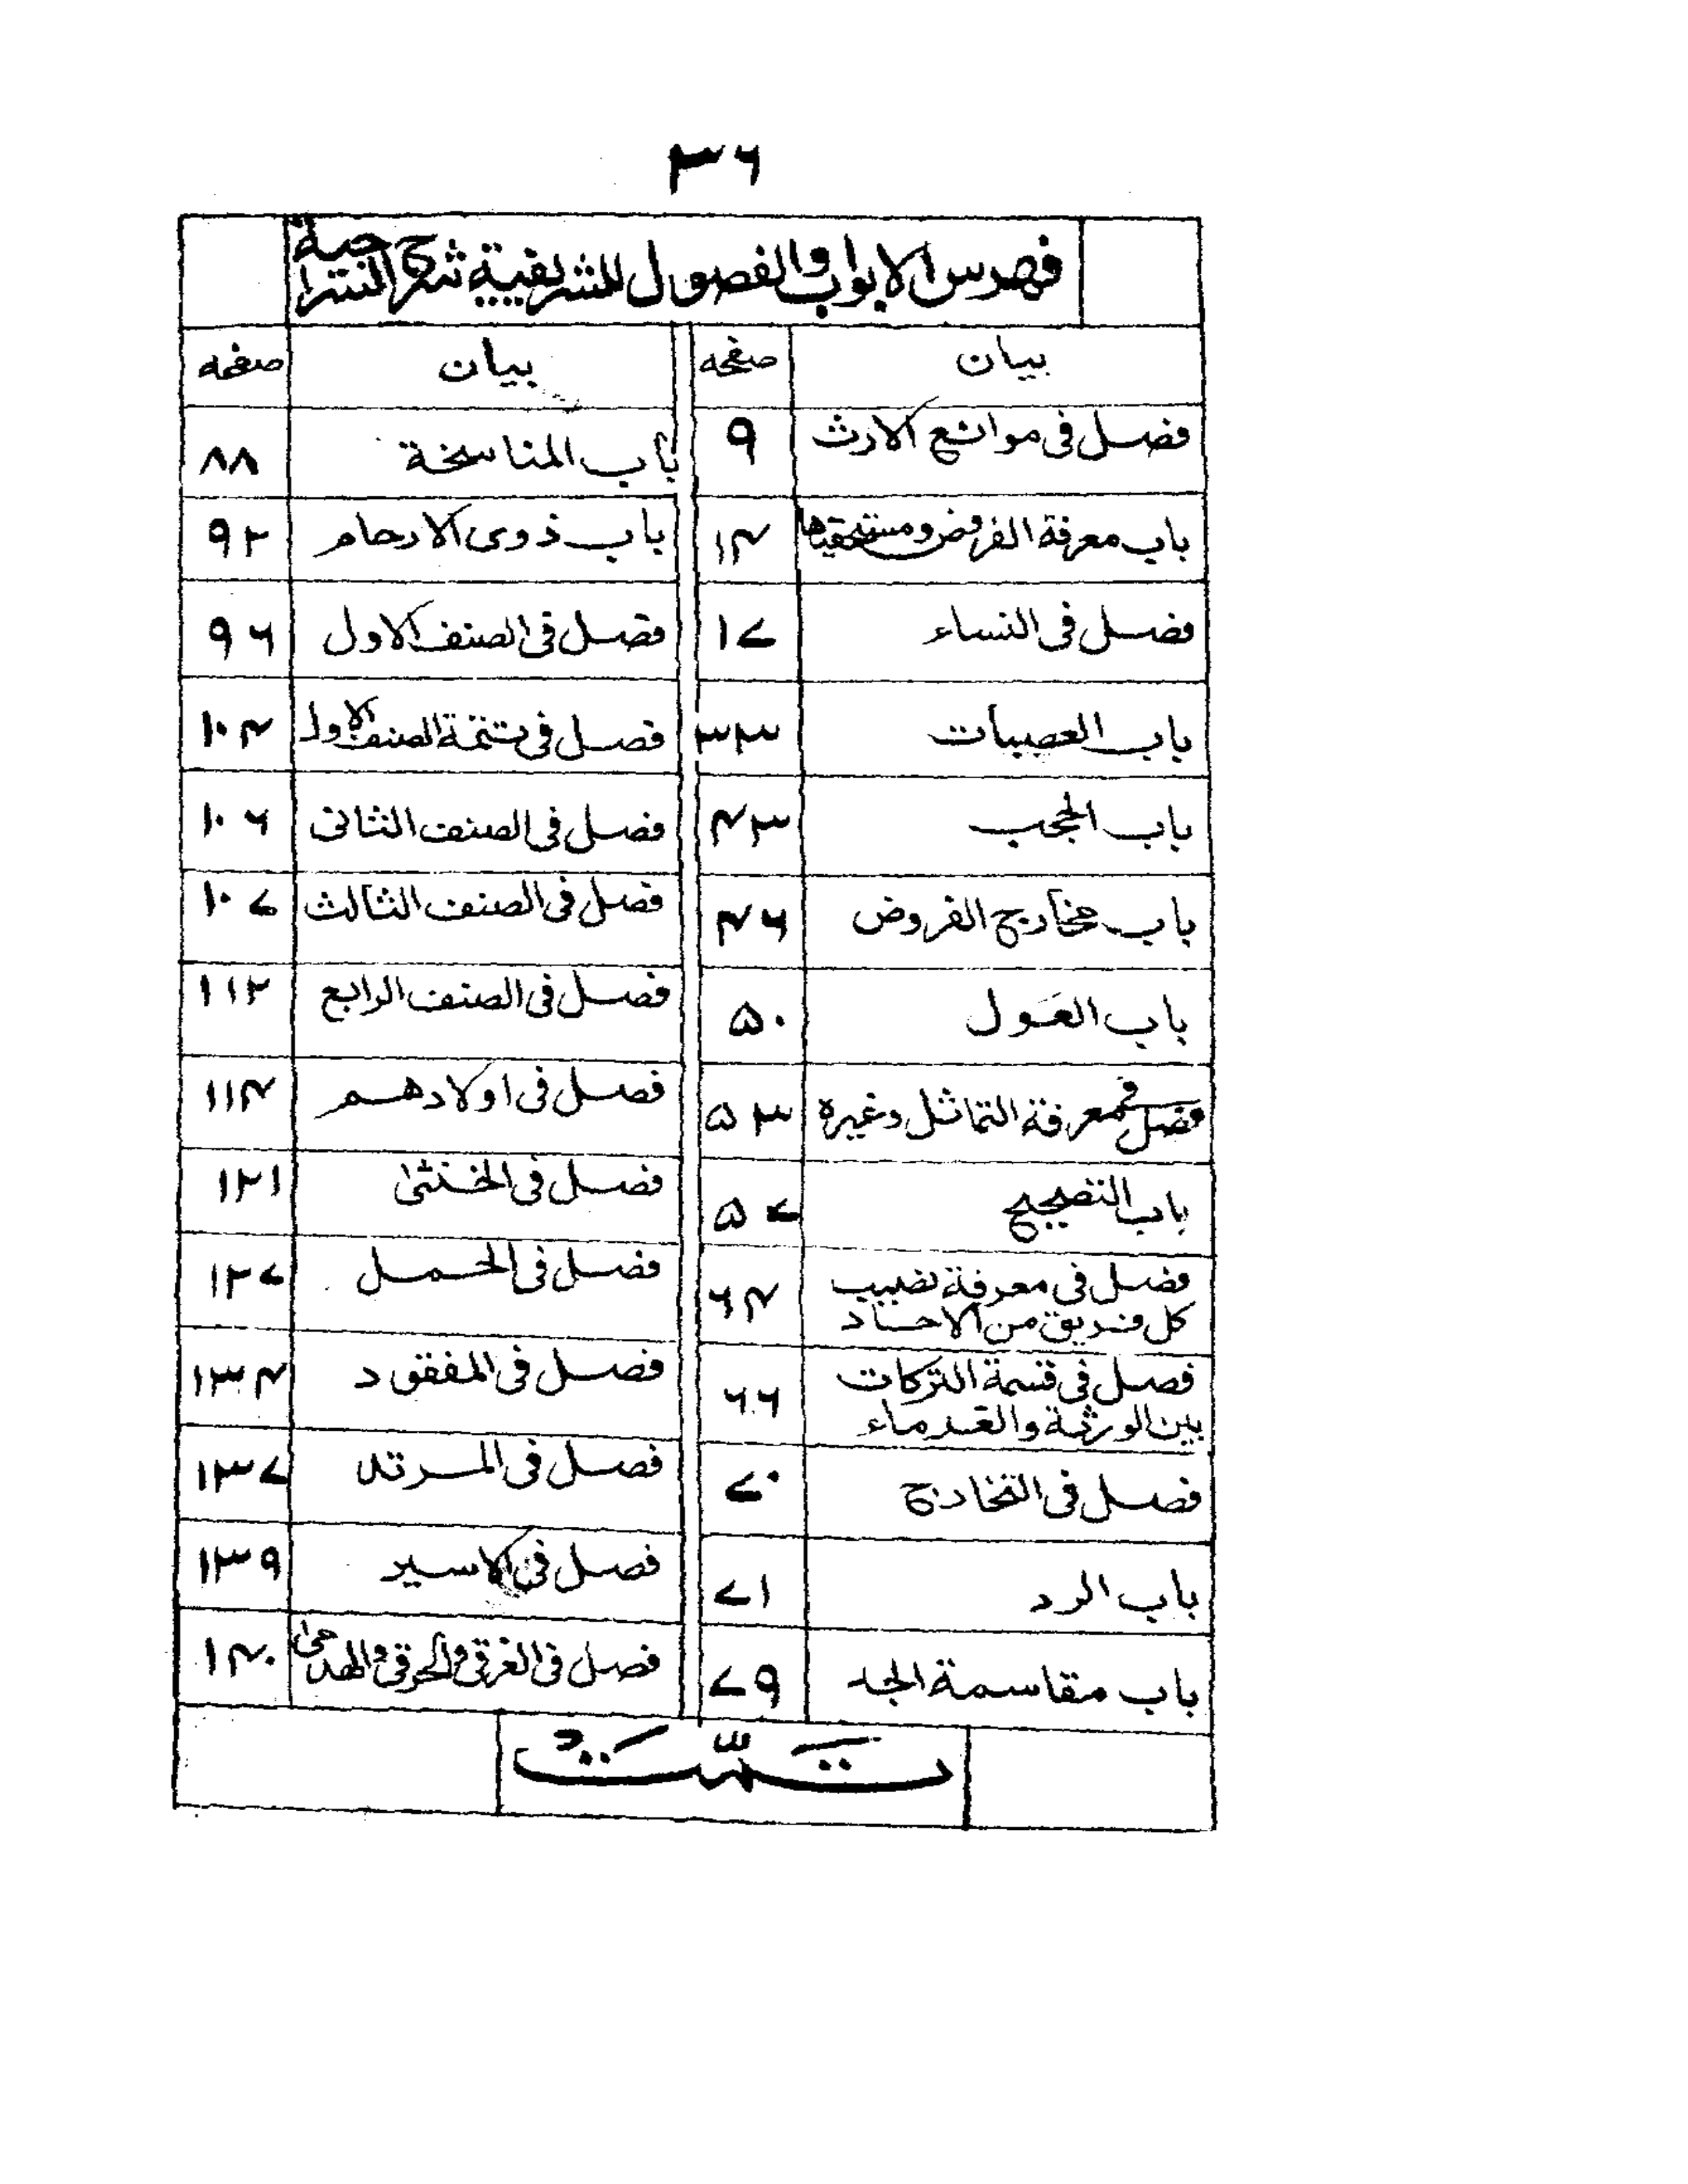 ۳۶
فهرس الابواب والفصول للشريفية شرح السراجية
بيان صفحه بيان صفحه
فصل فى موانع الارث ۹ باب المناسخة ۸۸
باب معرفة الفروض ومستحقيها ۱۴ باب ذوى الارحام ۹۲
فصل فى النساء ۱۷ فصل فى الصنف الاول ۹۶
باب العصبات ۳۳ فصل فى تتمة الصنف الاول ۱۰۴
باب الحجب ۴۳ فصل فى الصنف الثانى ۱۰۶
باب مخارج الفروض ۴۶ فصل فى الصنف الثالث ۱۰۷
باب العَول ۵۰ فصل فى الصنف الرابع ۱۱۲
فصل فى معرفة التماثل وغيره ۵۳ فصل فى اولادهم ۱۱۴
باب التصحيح ۵۷ فصل فى الخنثى ۱۲۱
فصل فى معرفة نصيب
كل فريق من الاحاد ۶۴ فصل فى الحمل ۱۲۷
فصل فى قسمة التركات
بين الورثة والغرماء ۶۶ فصل فى المفقود ۱۳۴
فصل فى التخارج ۷۰ فصل فى المرتد ۱۳۷
باب الرد ۷۱ فصل فى الاسير ۱۳۹
باب مقاسمة الجد ۷۹ فصل فى الغرقى والحرقى والهدمى ۱۴۰
تَمَّتْ